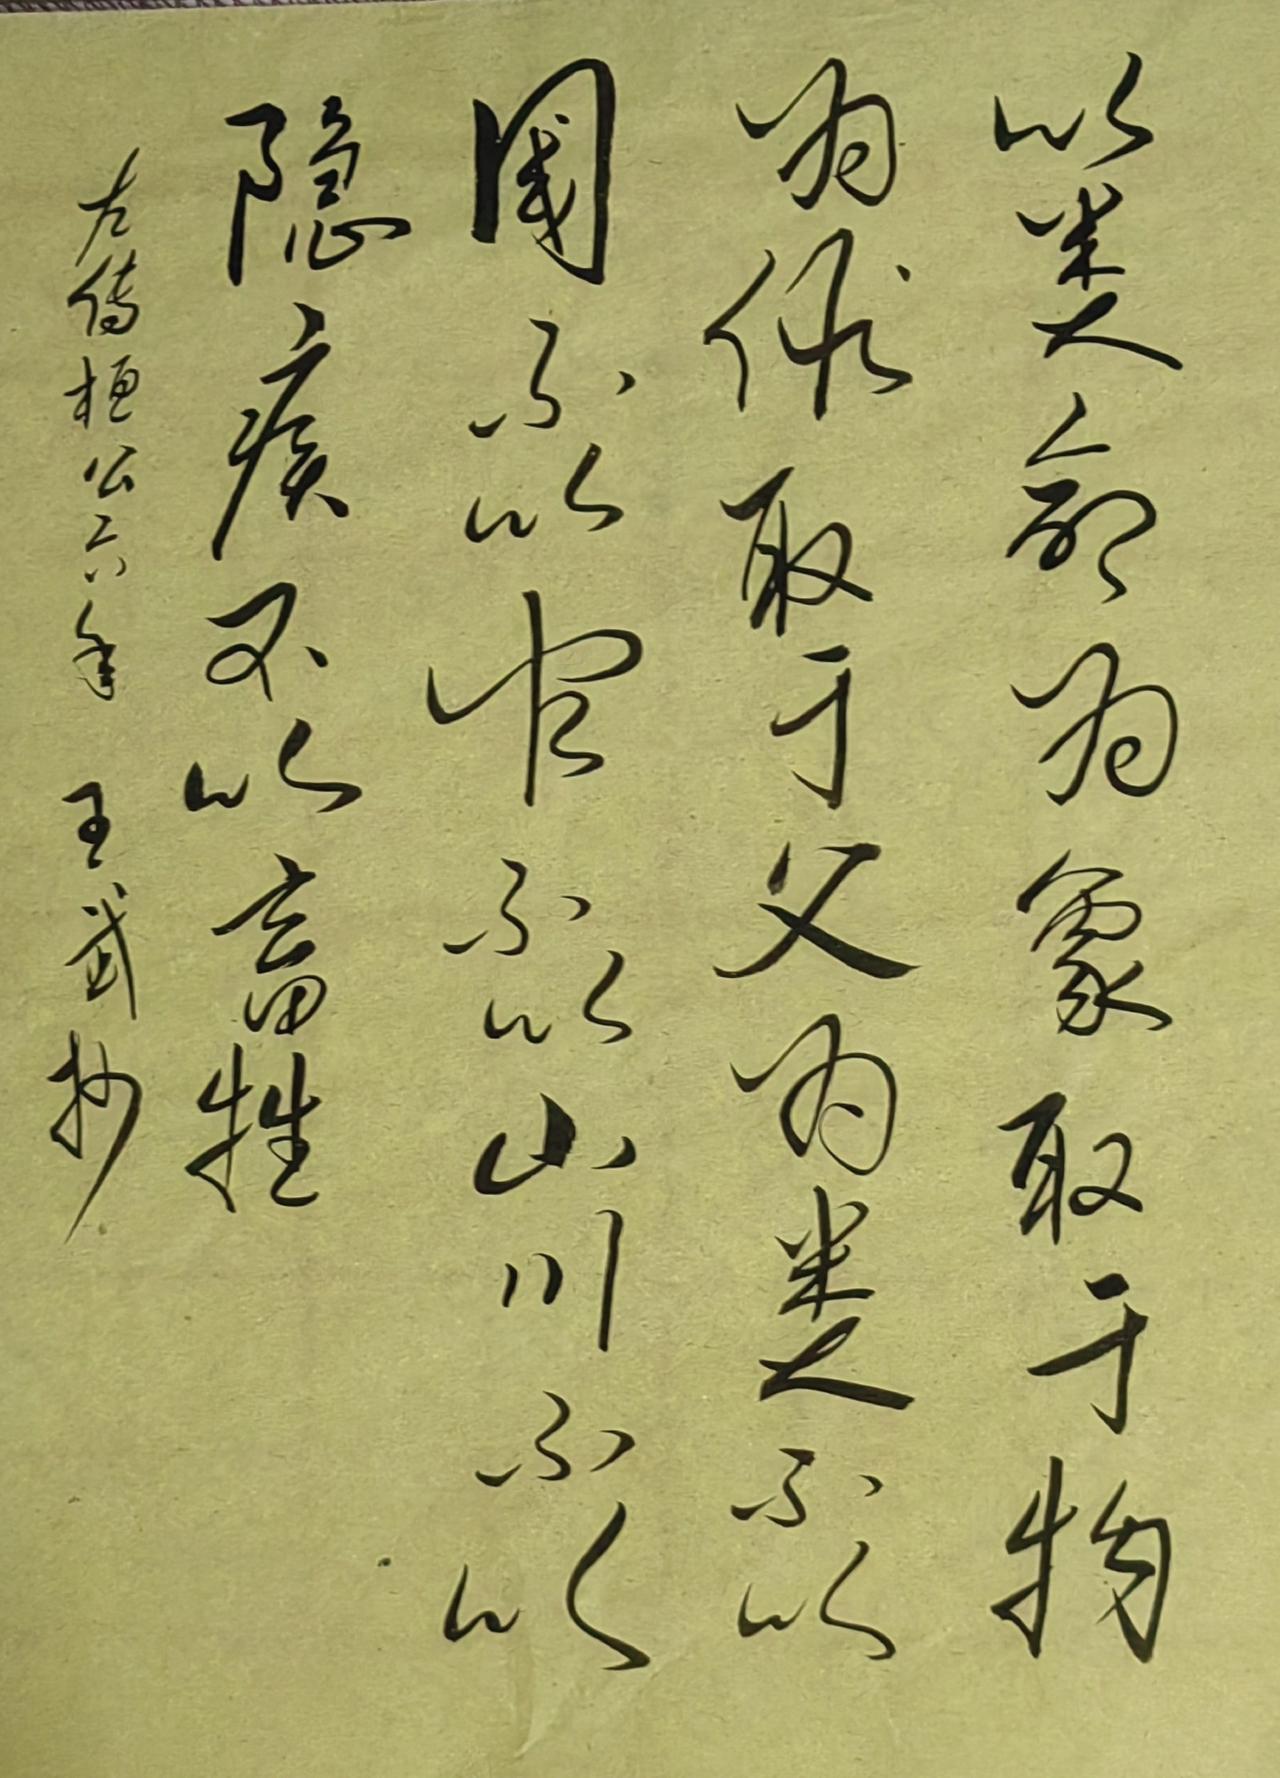 以类命为象取于物
为假取于父为类不以
国不以官不以山川不以
隐疾不以畜牲
左传桓公六年 王武抄